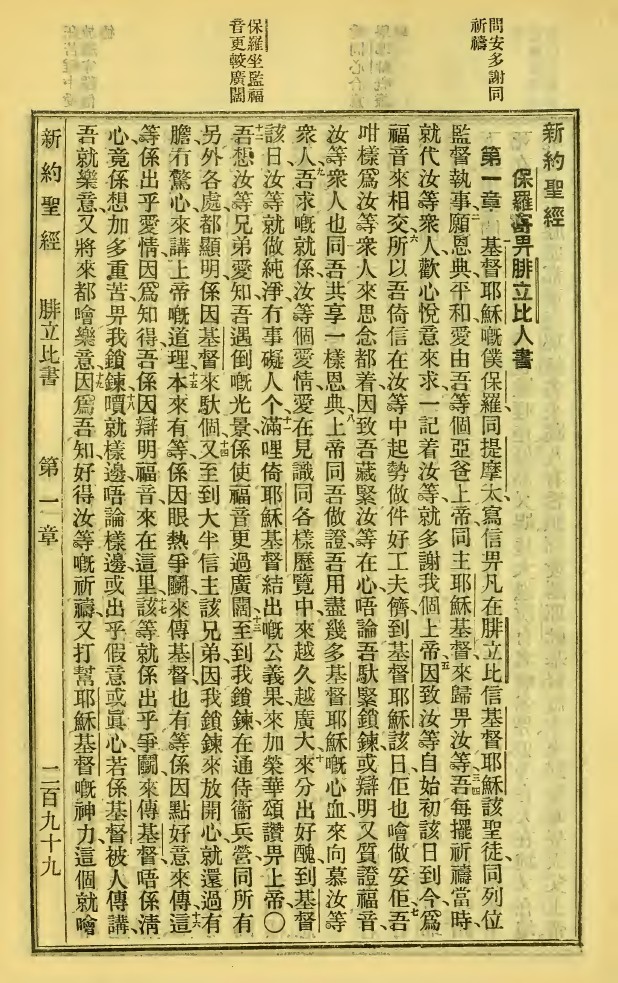 問安多謝同
祈禱
保羅坐監福
音更較廣闊
新約聖經
保羅寄畀腓立比人書
第一章 一基督耶穌嘅僕保羅同提摩太寫信畀凡在腓立比信基督耶穌該聖徒同列位
監督執事二願恩典平和愛由吾等個亞爸上帝同主耶穌基督來歸畀汝等三吾四每擺祈禱當時
就代汝等衆人歡心悅意來求一記着汝等就多謝我個上帝五因致汝等自始初該日到今爲
福音來相交六所以吾倚信在汝等中起勢做件好工夫儕到基督耶穌該日佢也噲做妥佢七吾
咁樣爲汝等衆人來思念都着因致吾藏緊汝等在心唔論吾馱緊鎖鍊或辯明又質證福音
汝等衆人也同吾共享一樣恩典八上帝同吾做證吾用盡幾多基督耶穌嘅心血來向慕汝等
衆人九吾求嘅就係汝等個愛情愛在見識同各樣歷覽中來越久越廣大十來分出好醜到基督
該日汝等就做純淨冇事礙人个十一滿哩倚耶穌基督結出嘅公義果來加榮華頌讚畀上帝〇
十二吾想汝等兄弟愛知吾遇倒嘅光景係使福音更過廣闊十三至到我鎖鍊在通侍衞兵營同所有
另外各處都顯明係因基督來馱個十四又至到大半信主該兄弟因我鎖鍊來放開心就還過有
膽冇驚心來講上帝嘅道理十五本來有等係因眼熱爭鬭來傳基督也有等係因點好意來傳十六這
等係出乎愛情因爲知得吾係因辯明福音來在這里十七該等就係出乎爭鬭來傳基督唔係淸
心竟係想加多重苦畀我鎖鍊十八嘳就樣邊唔論樣邊或出乎假意或眞心若係基督被人傳講
吾就樂意又將來都噲樂意十九因爲吾知好得汝等嘅祈禱又打幫耶穌基督嘅神力這個就噲
新約聖經 腓立比書 第一章 二百九十九